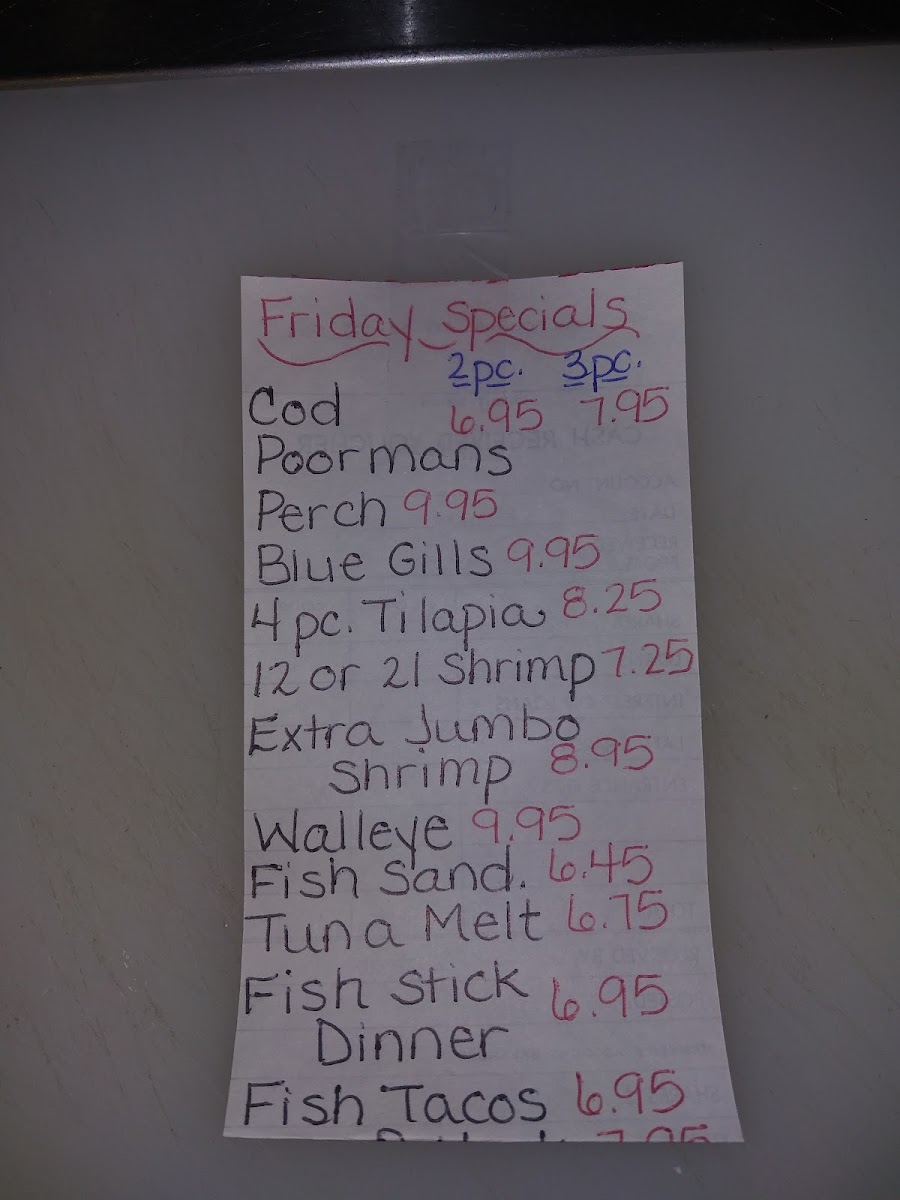 Friday Specials
2pc. 3pc.
Cod 6.95 7.95
Poormans
Perch 9.95
Blue Gills 9.95
4 pc. Tilapia 8.25
12 or 21 Shrimp 7.25
Extra Jumbo
Shrimp 8.95
Walleye 9.95
Fish Sand. 6.45
Tuna Melt 6.75
Fish Stick
Dinner 6.95
Fish Tacos 6.95